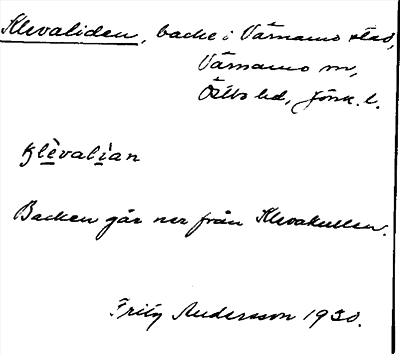 Klevaliden, backe i Värnamo stad,
Värnamo sn,
Östbo hd, Jönk. l.
klèvalian
Backen går ner från Klevakullen.
Fritz Andersson 1930.